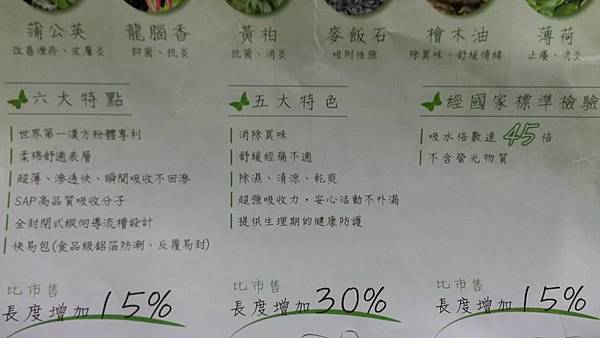 蒲公英 龍腦香 黃柏 麥飯石 檜木油 薄荷
改善溼疹、皮膚炎 抑菌、抗炎 抗菌、消炎 吸附性強 除異味、舒緩情緒 止癢、消炎
六大特點
世界第一漢方粉體專利
柔棉舒適表層
超薄、滲透快、瞬間吸收不回滲
SAP高品質吸收分子
全封閉式縱向導流槽設計
快易包(食品級鋁箔防潮、反覆易封)
五大特色
消除異味
舒緩經痛不適
除濕、清涼、乾爽
超強吸收力，安心活動不外漏
提供生理期的健康防護
經國家標準檢驗
吸水倍數達45倍
不含螢光物質
比市售
長度增加15%
比市售
長度增加30%
比市售
長度增加15%